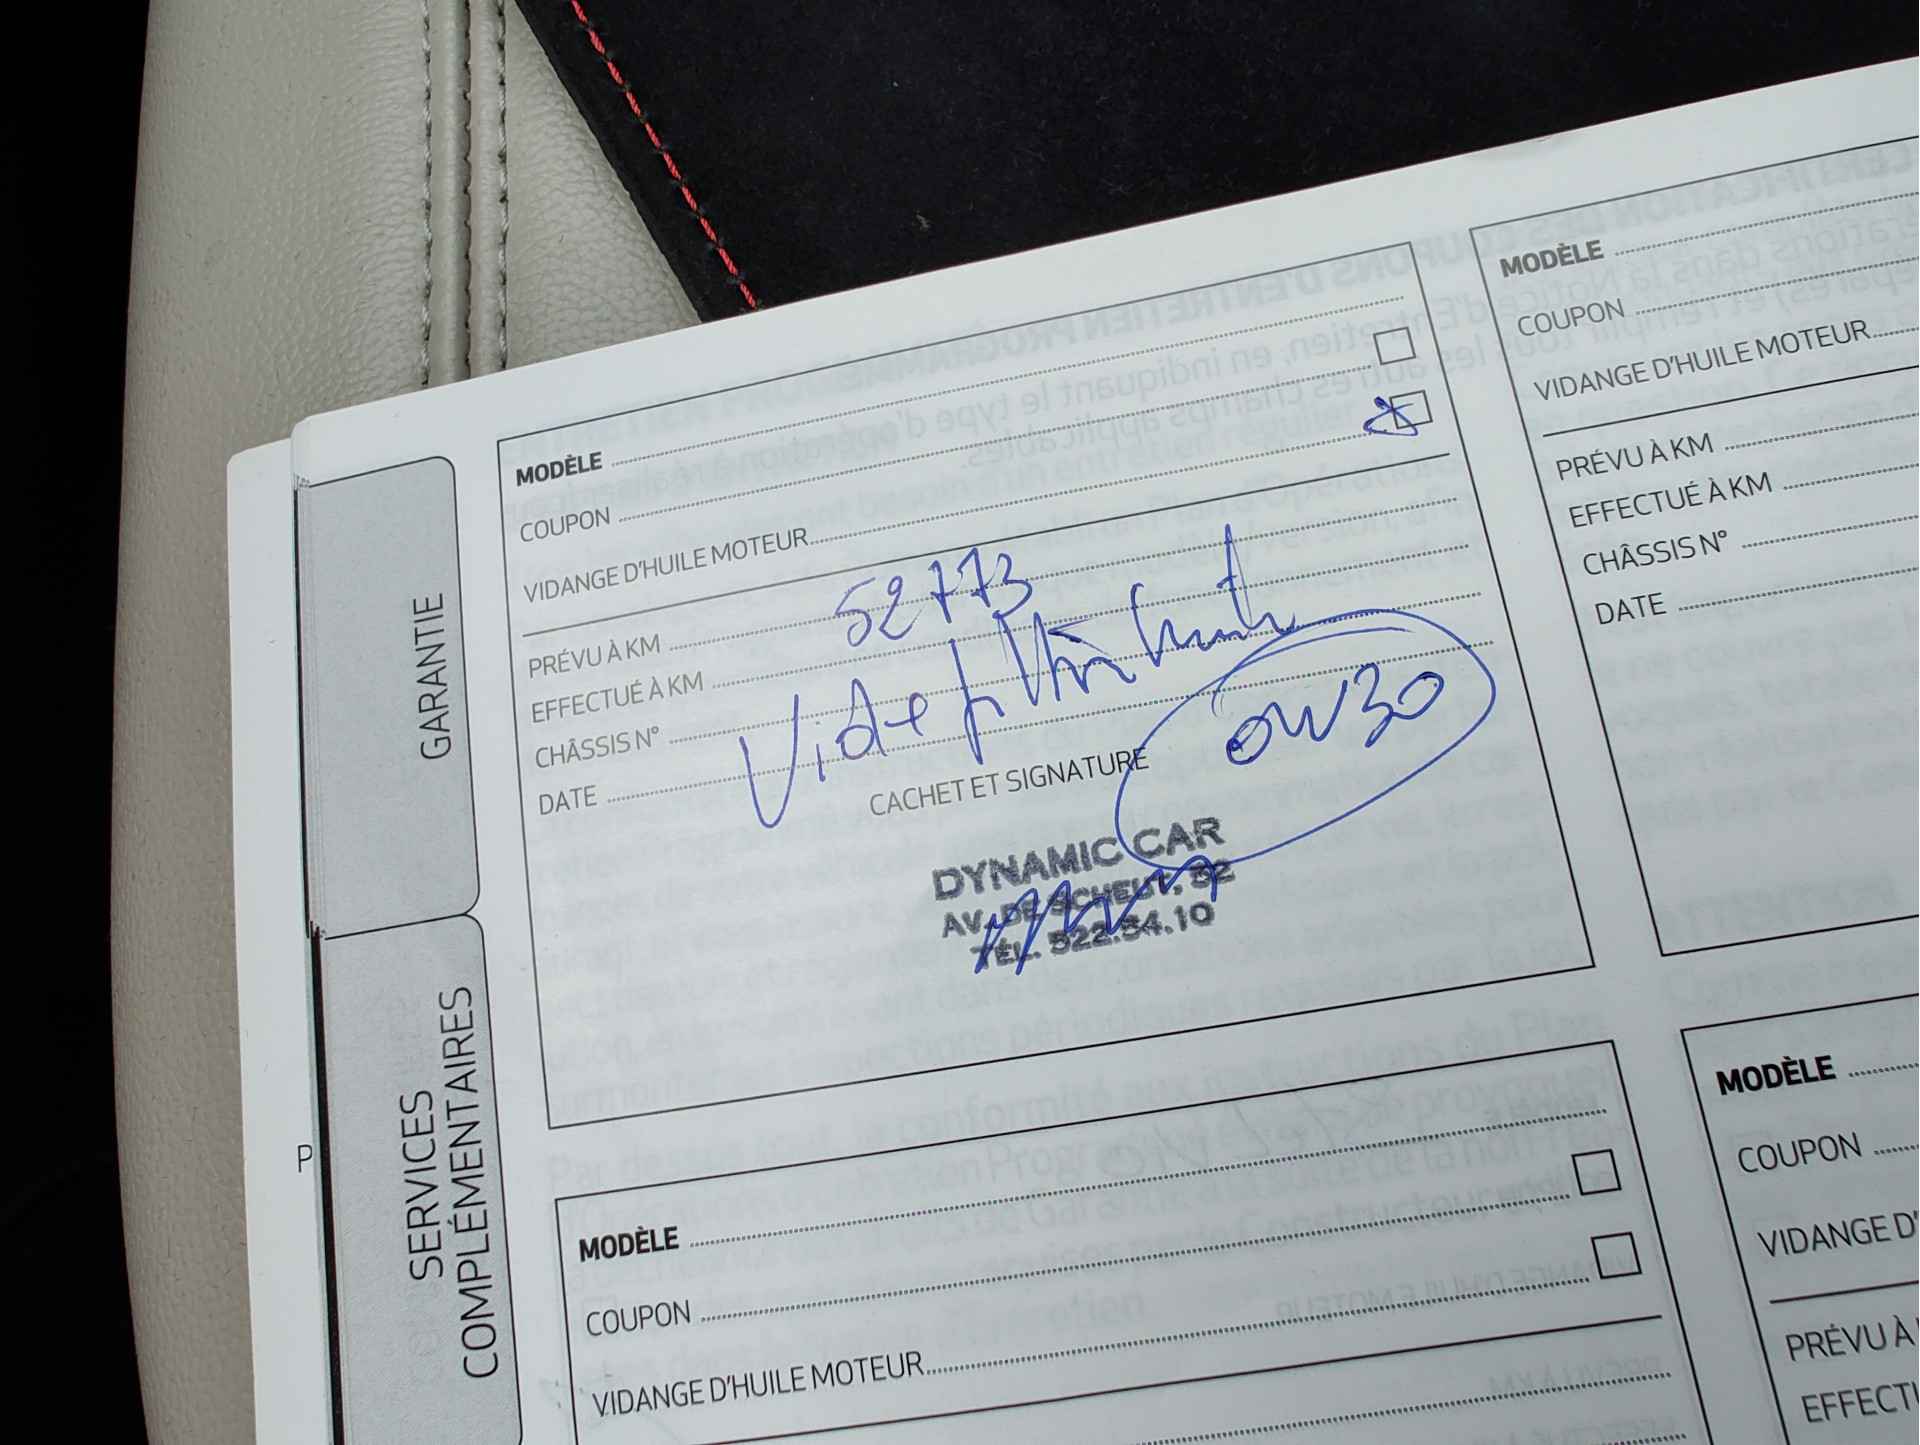 GARANTIE
SERVICES
COMPLÉMENTAIRES
P
MODÈLE
COUPON
VIDANGE D'HUILE MOTEUR
PRÉVU À KM
52773
EFFECTUÉ À KM
CHÂSSIS N°
DATE
CACHET ET SIGNATURE
0W30
DYNAMIC CAR
AV. DE SCHEUT. 32
TÉL. 522.54.10
MODÈLE
COUPON
VIDANGE D'HUILE MOTEUR
PRÉVU À KM
EFFECTUÉ À KM
CHÂSSIS N°
DATE
MODÈLE
COUPON
VIDANGE D'HUILE MOTEUR
MODÈLE
COUPON
VIDANGE D'
PRÉVU À
EFFECTU